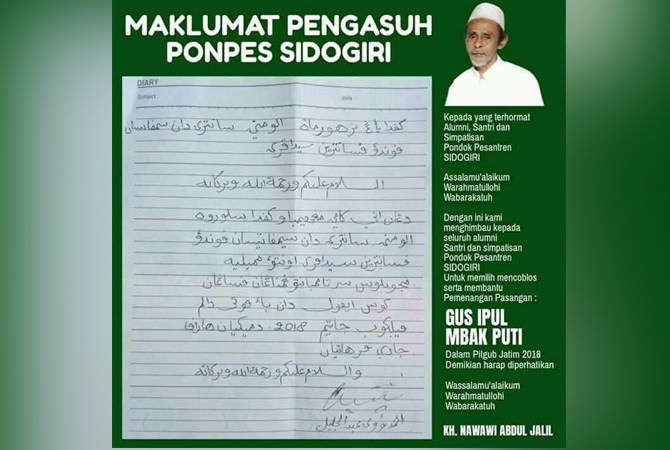 MAKLUMAT PENGASUH
PONPES SIDOGIRI
DIARY
Subject :
date :
كفدا يڠ ترهورماة الومني سانتري دان سمفاتيسان
فوندوء فسانترين سيداڮري
السلام عليكم ورحمة الله وبركاته
دڠان اني كامي مڠهيمباو كفدا سلوروه
الومني سانتري دان سيمفاتيسان فوندوء
فسانترين سيداڮري اونتوء مميليه
سرتا ممبانتو
ڮوس ايفول دان
دالم
2018 دميكيان هاراف
والسلام عليكم ورحمة الله وبركاته
نووي عبد الجليل
Kepada yang terhormat
Alumni, Santri dan
Simpatisan
Pondok Pesantren
SIDOGIRI
Assalamu'alaikum
Warahmatullohi
Wabarakatuh
Dengan ini kami
menghimbau kepada
seluruh alumni
Santri dan simpatisan
Pondok Pesantren
SIDOGIRI
Untuk memilih mencoblos
serta membantu
Pemenangan Pasangan :
GUS IPUL
MBAK PUTI
Dalam Pilgub Jatim 2018
Demikian harap diperhatikan
Wassalamu'alaikum
Warahmatullohi
Wabarakatuh
KH. NAWAWI ABDUL JALIL